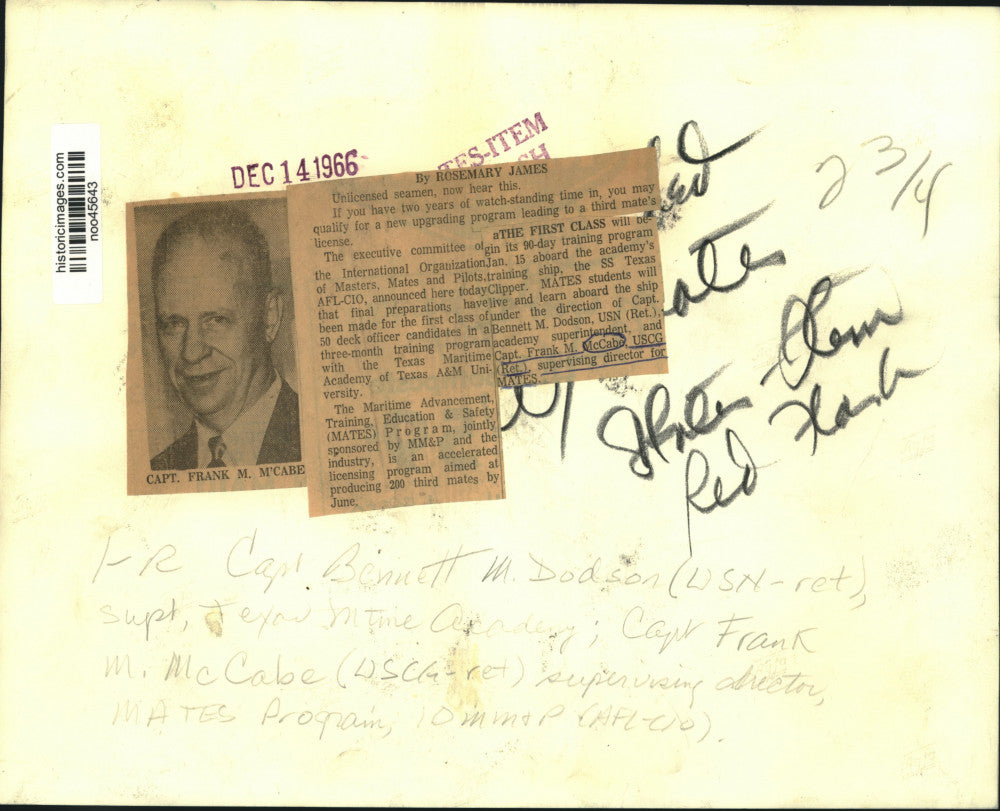 historicimages.com
noo45643
DEC 14 1966
ES-ITEM
By ROSEMARY JAMES
Unlicensed seamen, now hear this.
If you have two years of watch-standing time in, you may
qualify for a new upgrading program leading to a third mate's
license.
The executive committee of
the International Organization
of Masters, Mates and Pilots,
AFL-CIO, announced here today
that final preparations have
been made for the first class of
50 deck officer candidates in a
three-month training program
with the Texas Maritime
Academy of Texas A&M Uni-
versity.
The Maritime Advancement,
Training, Education & Safety
(MATES) Program, jointly
sponsored by MM&P and the
industry, is an accelerated
licensing program aimed at
producing 200 third mates by
June.
aTHE FIRST CLASS will be-
gin its 90-day training program
Jan. 15 aboard the academy's
training ship, the SS Texas
Clipper. MATES students will
live and learn aboard the ship
under the direction of Capt.
Bennett M. Dodson, USN (Ret.),
academy superintendent, and
Capt. Frank M. McCabe, USCG
(Ret.), supervising director for
MATES.
CAPT. FRANK M. M'CABE
2 3/4
Red
l-R Capt Bennett M. Dodson (USN-ret),
supt, Texas Mtime Academy; Capt Frank
M. McCabe (USCG-ret) supervising director,
MATES Program, IOMM&P (AFL-CIO).